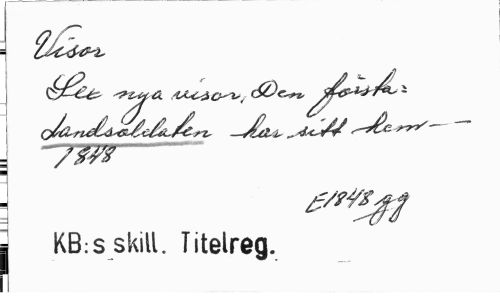 Visor
Sex nya visor, Den första:
Landsoldaten har sitt hem—
1848
E1848 gg
KB:s skill. Titelreg.